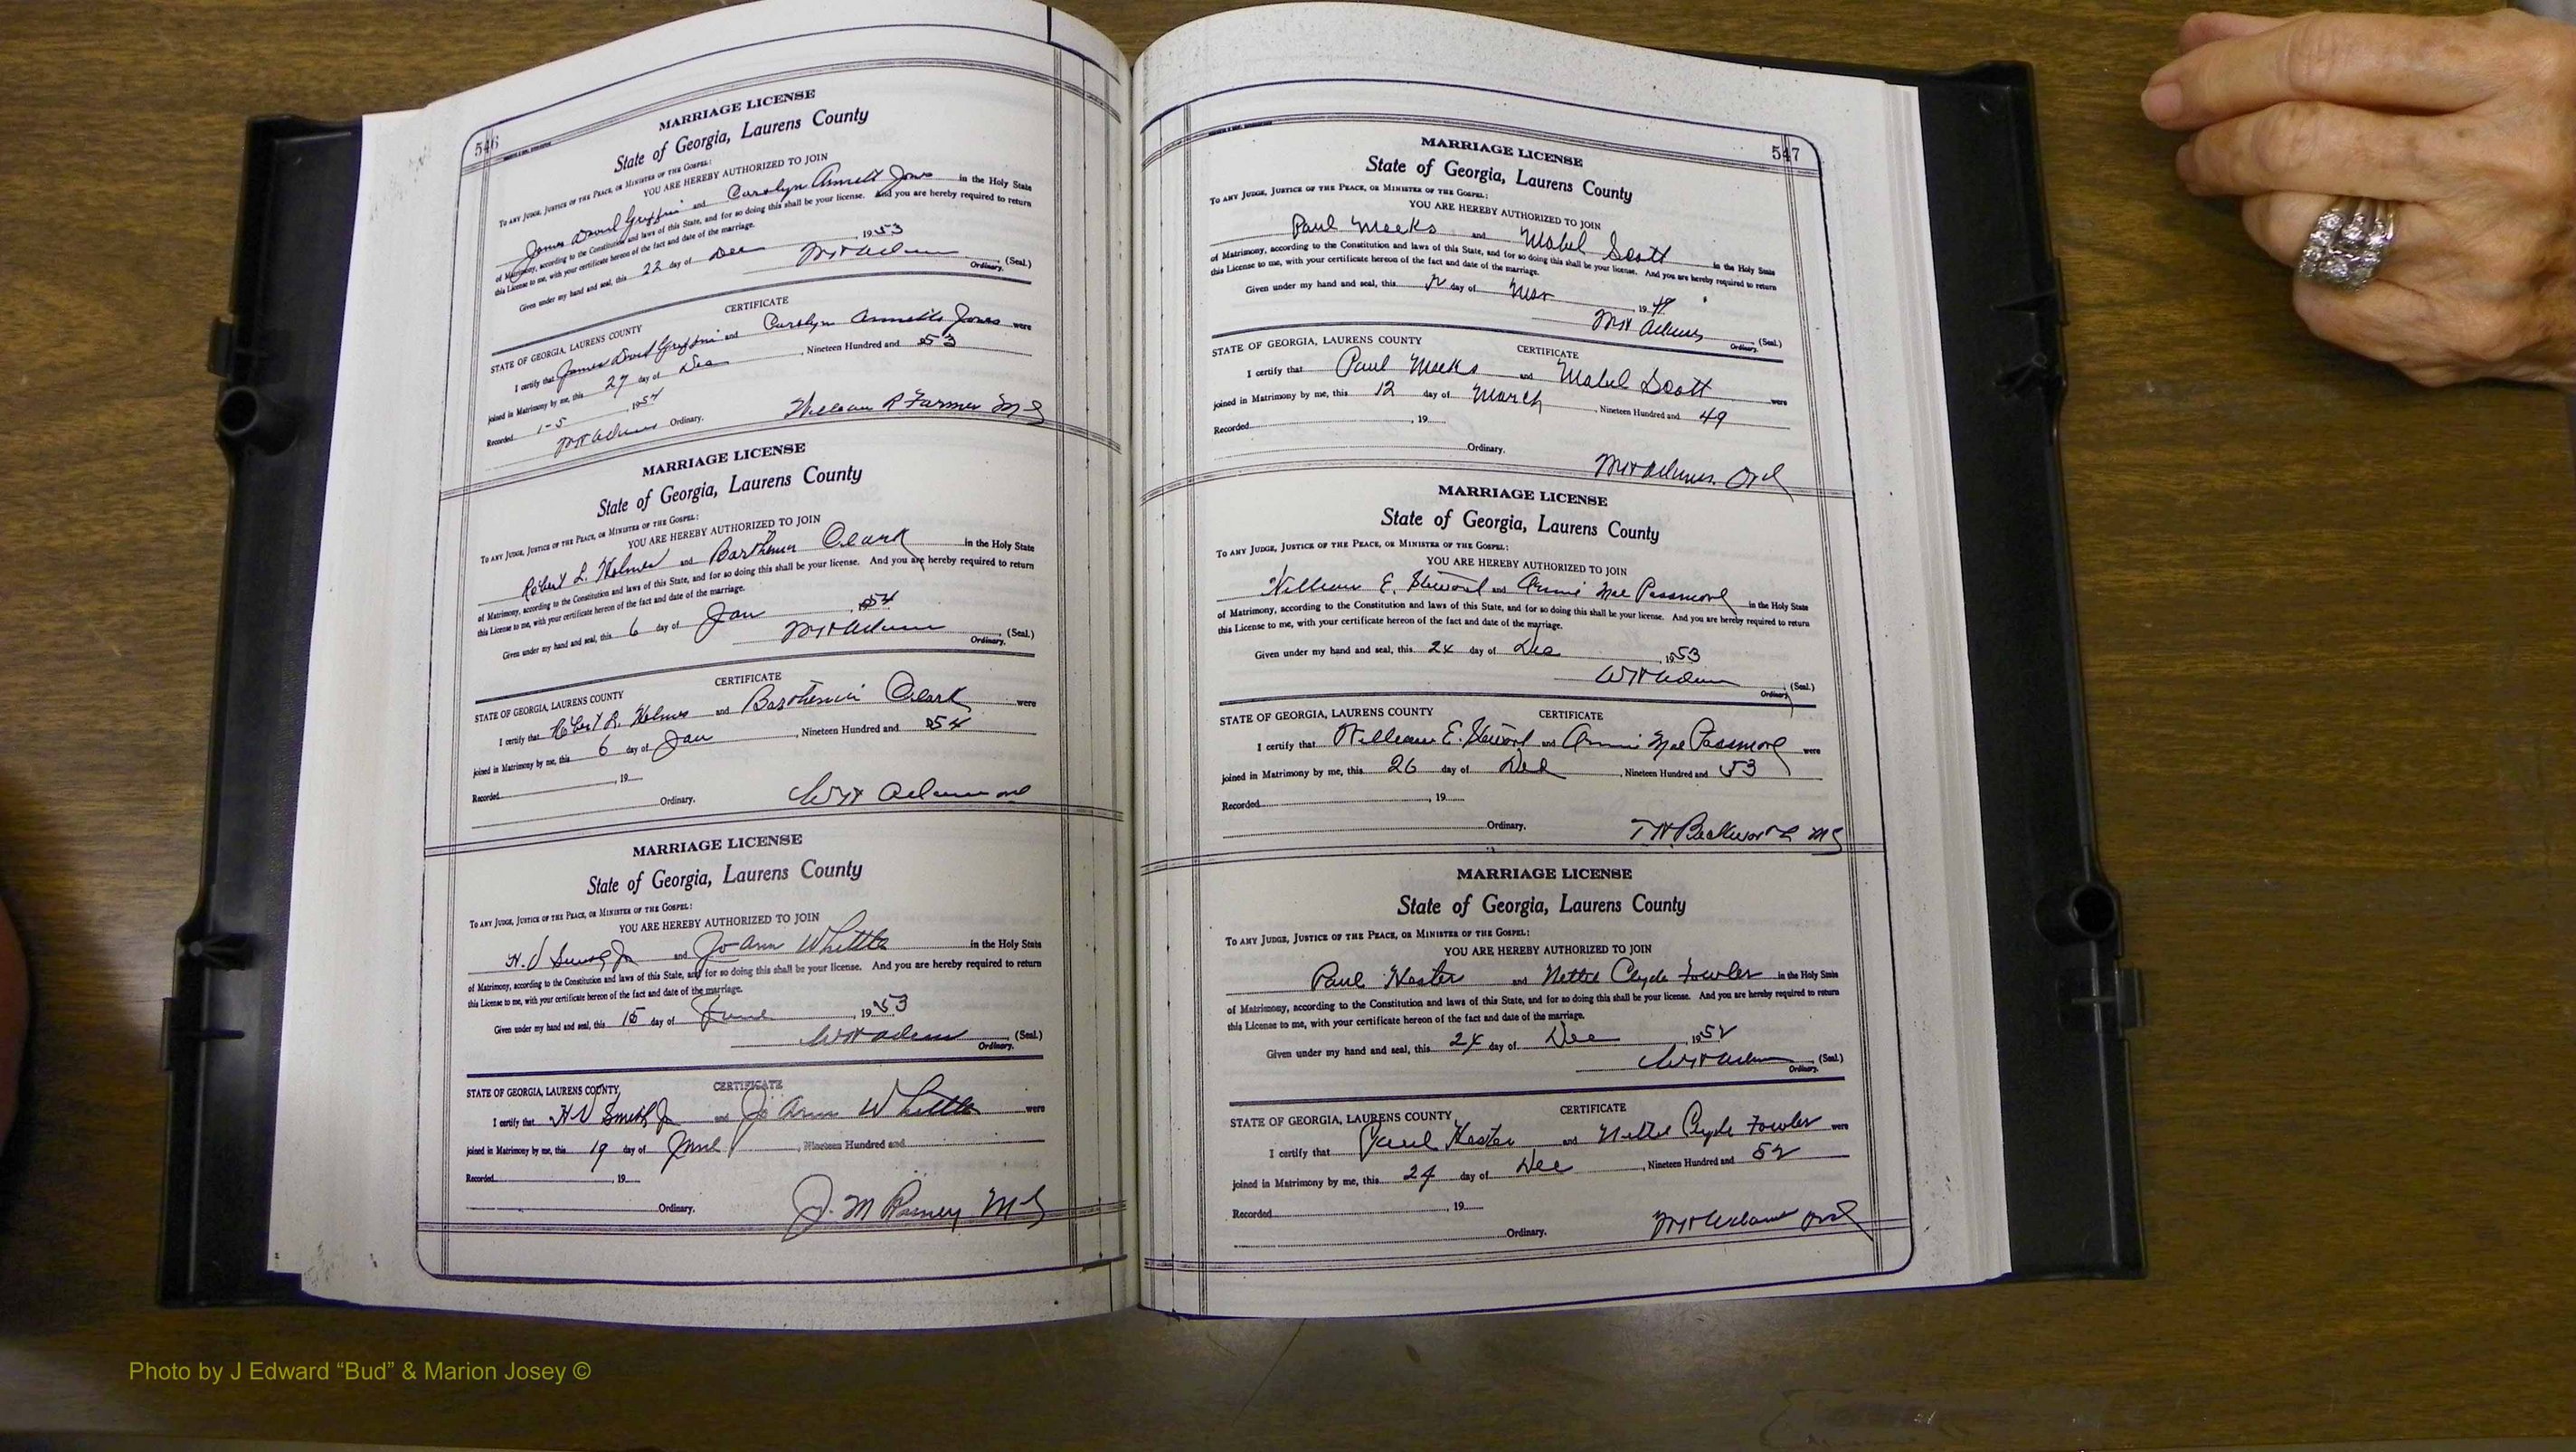 546
MARRIAGE LICENSE
State of Georgia, Laurens County
To any Judge, Justice of the Peace, or Minister of the Gospel:
YOU ARE HEREBY AUTHORIZED TO JOIN
James David Griffin and Carolyn Annett Jones in the Holy State
of Matrimony, according to the Constitution and laws of this State, and for so doing this shall be your license. And you are hereby required to return
this License to me, with your certificate hereon of the fact and date of the marriage.
Given under my hand and seal, this 22 day of Dec, 1953
(Seal.)
Ordinary.
CERTIFICATE
STATE OF GEORGIA, LAURENS COUNTY
I certify that James David Griffin and Carolyn Annette Jones were
joined in Matrimony by me, this 27 day of Dec, Nineteen Hundred and 53
Recorded 1-5, 1954
Ordinary.
William R Farmer MG
MARRIAGE LICENSE
State of Georgia, Laurens County
To any Judge, Justice of the Peace, or Minister of the Gospel:
YOU ARE HEREBY AUTHORIZED TO JOIN
Robert L. Holmes and Clark in the Holy State
of Matrimony, according to the Constitution and laws of this State, and for so doing this shall be your license. And you are hereby required to return
this License to me, with your certificate hereon of the fact and date of the marriage.
Given under my hand and seal, this 6 day of Jan, 1954
(Seal.)
Ordinary.
CERTIFICATE
STATE OF GEORGIA, LAURENS COUNTY
I certify that Robert L. Holmes and Clark were
joined in Matrimony by me, this 6 day of Jan, Nineteen Hundred and 54
Recorded, 19
Ordinary.
MARRIAGE LICENSE
State of Georgia, Laurens County
To any Judge, Justice of the Peace, or Minister of the Gospel:
YOU ARE HEREBY AUTHORIZED TO JOIN
and Jo Ann Whittle in the Holy State
of Matrimony, according to the Constitution and laws of this State, and for so doing this shall be your license. And you are hereby required to return
this License to me, with your certificate hereon of the fact and date of the marriage.
Given under my hand and seal, this 15 day of June, 1953
(Seal.)
Ordinary.
CERTIFICATE
STATE OF GEORGIA, LAURENS COUNTY
I certify that Smith Jr and Jo Ann Whittle were
joined in Matrimony by me, this 19 day of June, Nineteen Hundred and
Recorded, 19
Ordinary.
J. M MG
547
MARRIAGE LICENSE
State of Georgia, Laurens County
To any Judge, Justice of the Peace, or Minister of the Gospel:
YOU ARE HEREBY AUTHORIZED TO JOIN
Paul Meeks and Mabel Scott in the Holy State
of Matrimony, according to the Constitution and laws of this State, and for so doing this shall be your license. And you are hereby required to return
this License to me, with your certificate hereon of the fact and date of the marriage.
Given under my hand and seal, this day of Mar, 19
(Seal.)
Ordinary.
STATE OF GEORGIA, LAURENS COUNTY
CERTIFICATE
I certify that Paul Meeks and Mabel Scott were
joined in Matrimony by me, this 12 day of March, Nineteen Hundred and 49
Recorded, 19
Ordinary.
Adams. Ord
MARRIAGE LICENSE
State of Georgia, Laurens County
To any Judge, Justice of the Peace, or Minister of the Gospel:
YOU ARE HEREBY AUTHORIZED TO JOIN
William E. Steward and Annie Mae Passmore in the Holy State
of Matrimony, according to the Constitution and laws of this State, and for so doing this shall be your license. And you are hereby required to return
this License to me, with your certificate hereon of the fact and date of the marriage.
Given under my hand and seal, this 24 day of Dec, 1953
(Seal.)
Ordinary
STATE OF GEORGIA, LAURENS COUNTY
CERTIFICATE
I certify that William E. Steward and Annie Mae Passmore were
joined in Matrimony by me, this 26 day of Dec, Nineteen Hundred and 53
Recorded, 19
Ordinary.
MG
MARRIAGE LICENSE
State of Georgia, Laurens County
To any Judge, Justice of the Peace, or Minister of the Gospel:
YOU ARE HEREBY AUTHORIZED TO JOIN
Paul Hester and Nettie Clyde Fowler in the Holy State
of Matrimony, according to the Constitution and laws of this State, and for so doing this shall be your license. And you are hereby required to return
this License to me, with your certificate hereon of the fact and date of the marriage.
Given under my hand and seal, this 24 day of Dec, 1952
(Seal.)
Ordinary.
CERTIFICATE
STATE OF GEORGIA, LAURENS COUNTY
I certify that Paul Hester and Nettie Clyde Fowler were
joined in Matrimony by me, this 24 day of Dec, Nineteen Hundred and 52
Recorded, 19
Ordinary.
Photo by J Edward “Bud” & Marion Josey ©